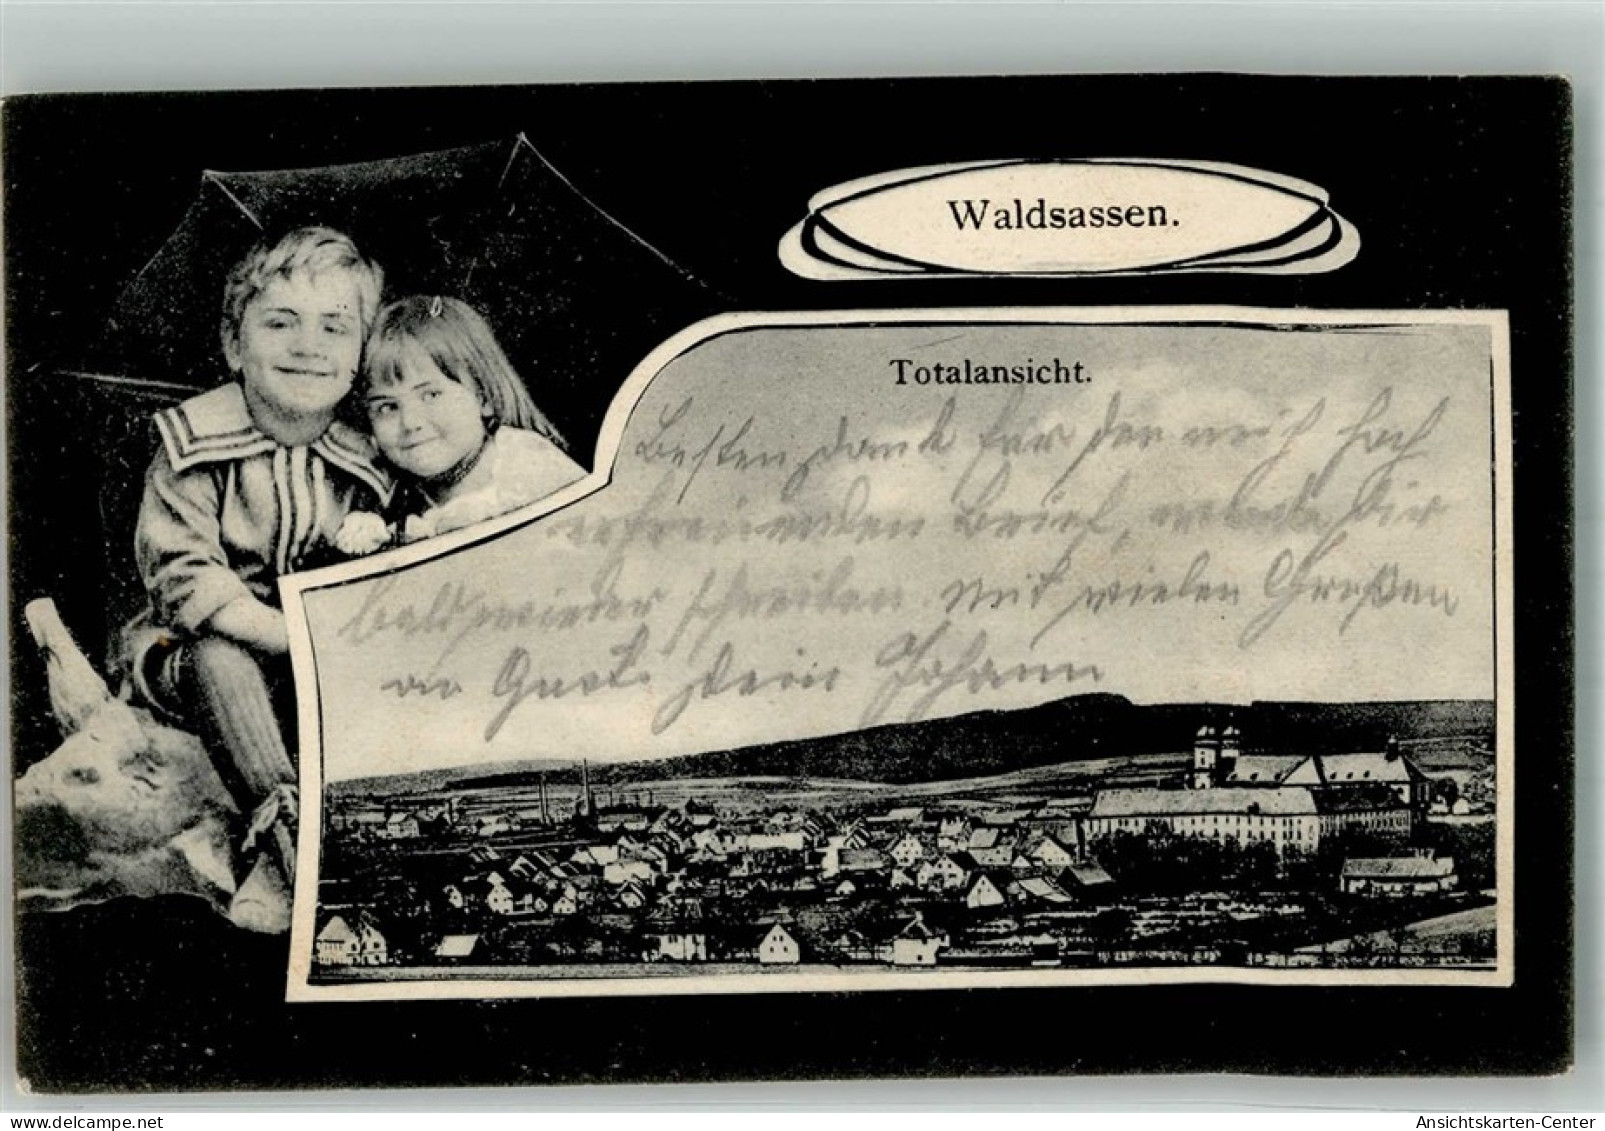 Waldsassen.
Totalansicht.
Besten Dank für den mich hoch
erfreuenden Brief, werde Dir
bald wieder schreiben. Mit vielen Grüßen
Dein Johann
delcampe.net
Ansichtskarten-Center